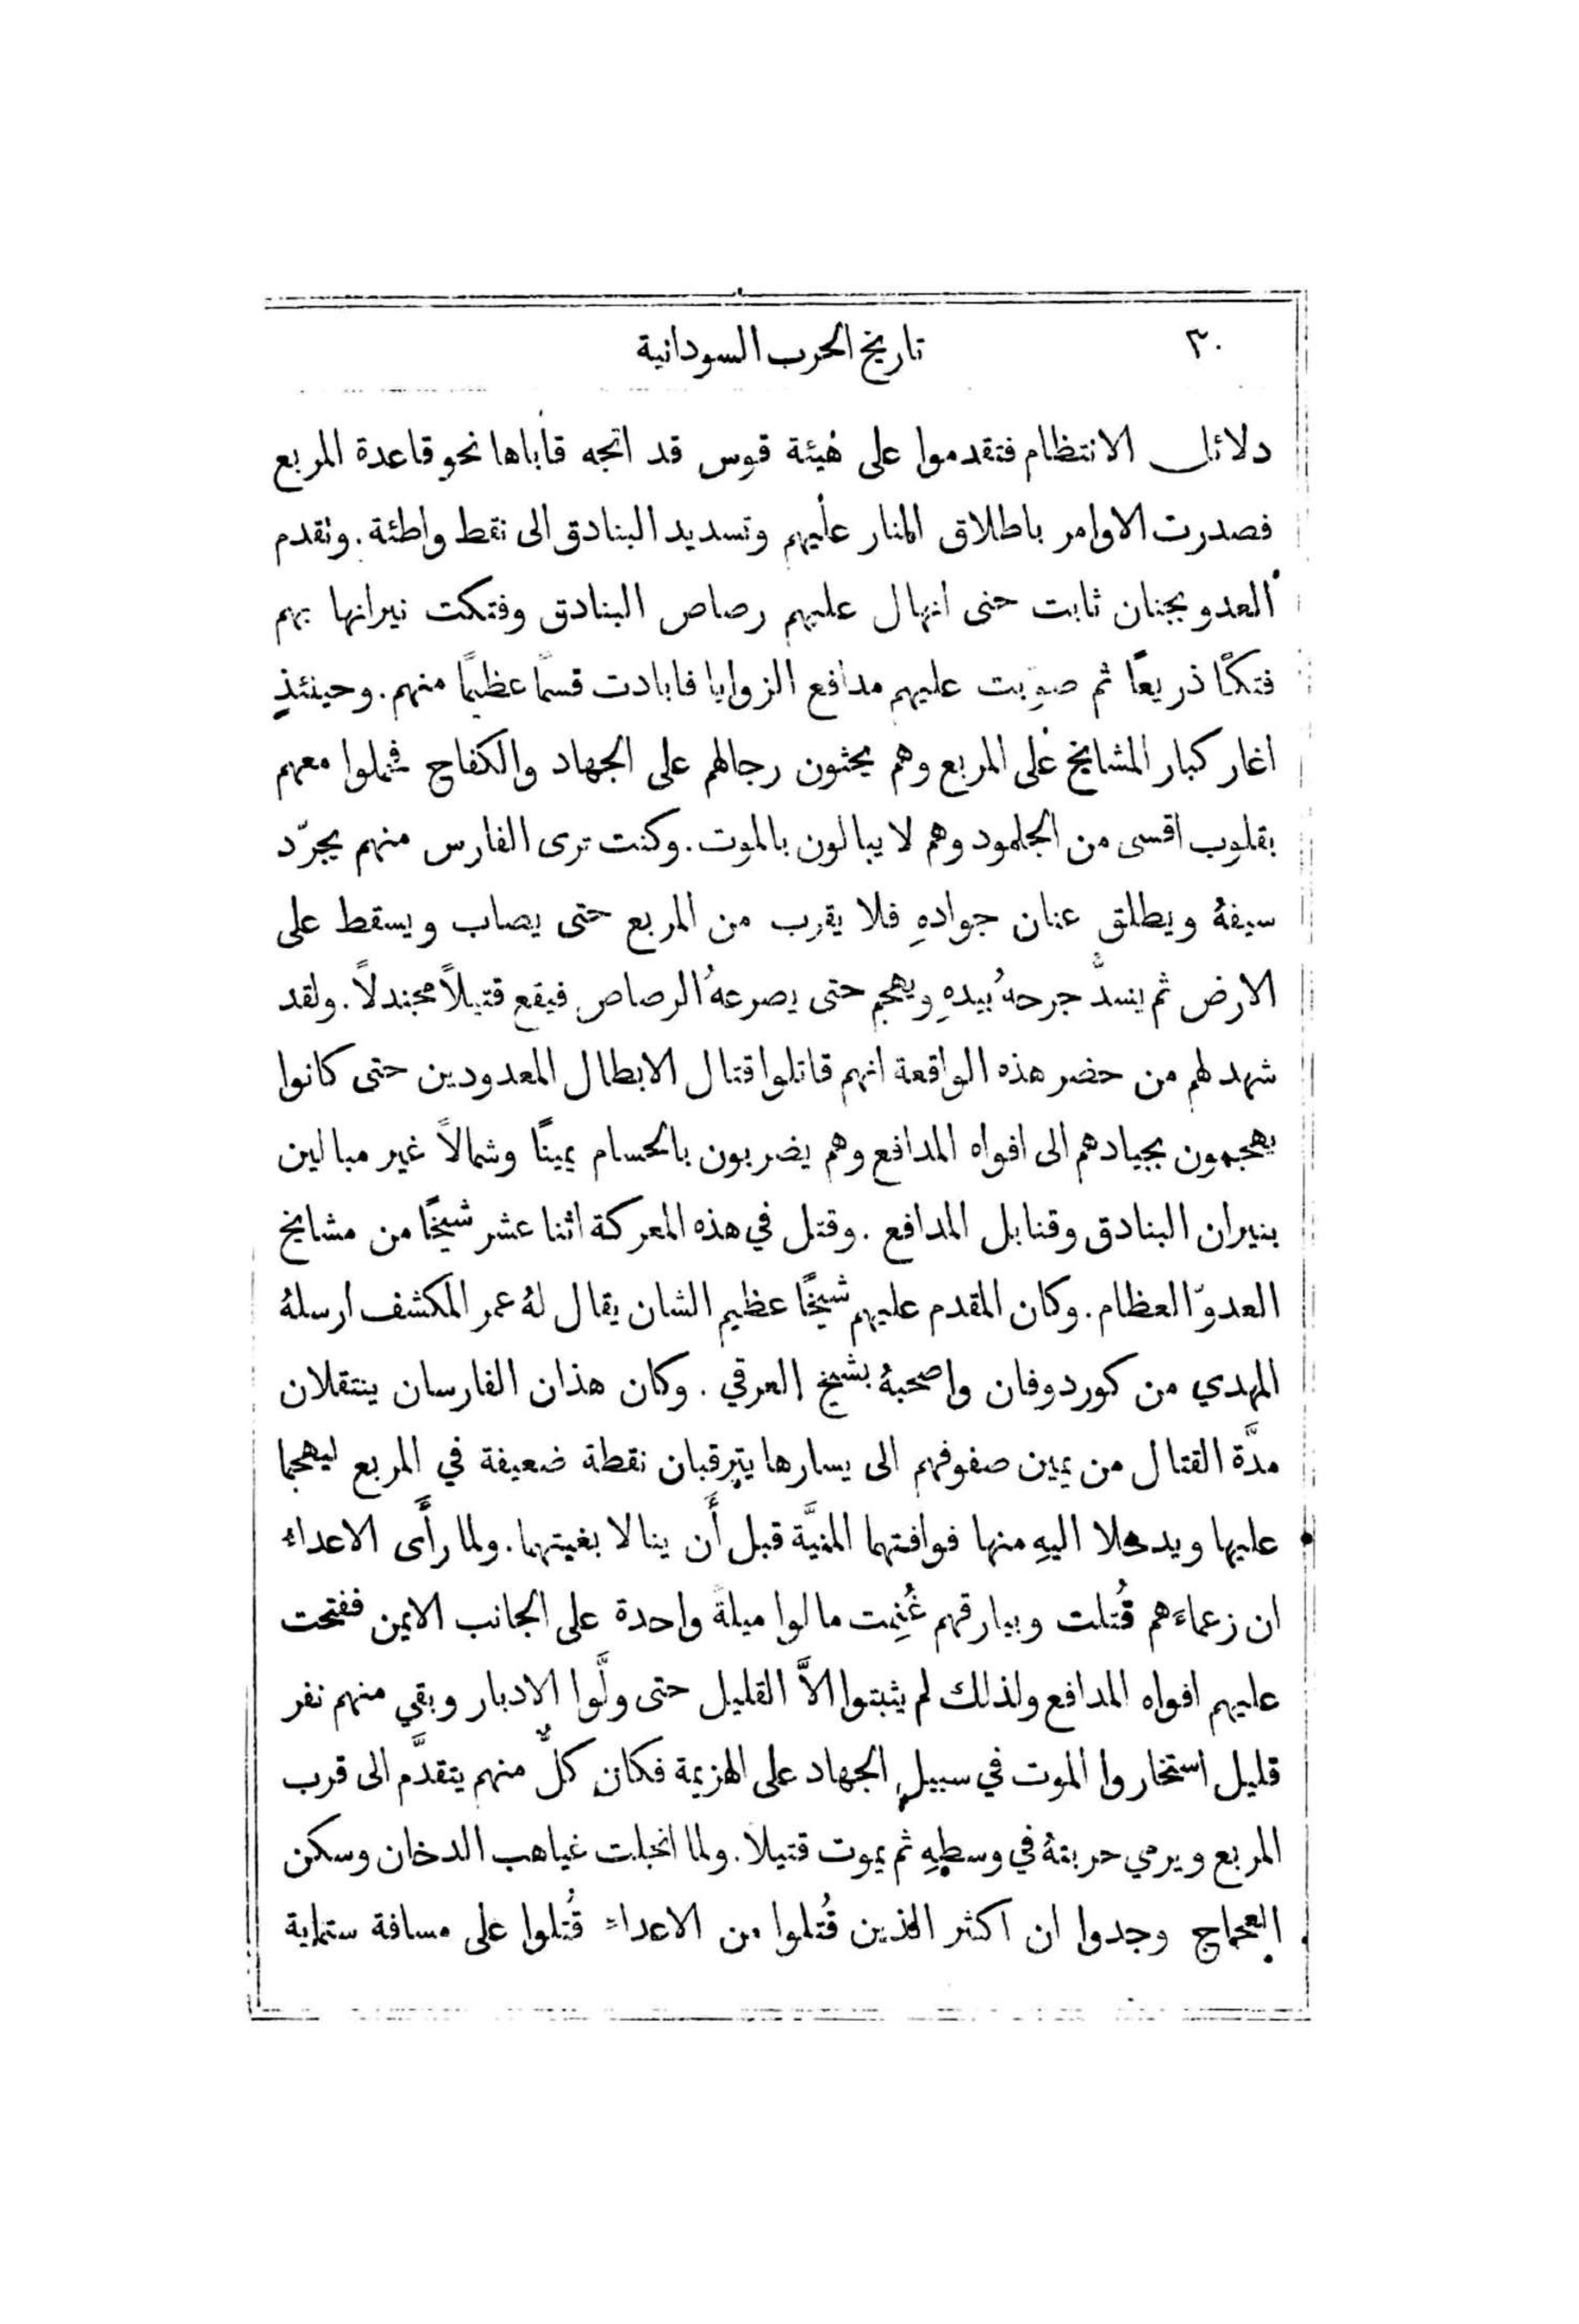 ٣٠
تاريخ الحرب السودانية
دلائل الانتظام فتقدموا على هيئة قوس قد اتجه قاباها نحو قاعدة المربع
فصدرت الاوامر باطلاق النار عليهم وتسديد البنادق الى نقط واطئة. وتقدم
العدو بجنان ثابت حتى انهال عليهم رصاص البنادق وفتكت نيرانها بهم
فتكًا ذريعًا ثم صوّبت عليهم مدافع الزوايا فابادت قسمًا عظيمًا منهم. وحينئذٍ
اغار كبار المشايخ على المربع وهم يحثون رجالهم على الجهاد والكفاح فحملوا معهم
بقلوب اقسى من الجلمود وهم لا يبالون بالموت. وكنت ترى الفارس منهم يجرّد
سيفهُ ويطلق عنان جوادهِ فلا يقرب من المربع حتى يصاب ويسقط على
الارض ثم ينسدُّ جرحهُ بيدهِ ويهجم حتى يصرعهُ الرصاص فيقع قتيلاً مجندلاً. ولقد
شهد لهم من حضر هذه الواقعة انهم قاتلوا قتال الابطال المعدودين حتى كانوا
يهجمون بجيادهم الى افواه المدافع وهم يضربون بالحسام يمينًا وشمالاً غير مبالين
بنيران البنادق وقنابل المدافع. وقتل في هذه المعركة اثنا عشر شيخًا من مشايخ
العدوّ العظام. وكان المقدم عليهم شيخًا عظيم الشان يقال لهُ عمر المكشف ارسلهُ
المهدي من كوردوفان واصحبهُ بشيخ العرقي. وكان هذان الفارسان ينتقلان
مدَّة القتال من يمين صفوفهم الى يسارها يترقبان نقطة ضعيفة في المربع ليهجما
عليها ويدخلا اليهِ منها فوافتهما المنيَّة قبل أَن ينالا بغيتهما. ولما رأَى الاعداء
ان زعماءَهم قُتلت وبيارقهم غُنِمت مالوا ميلةً واحدة على الجانب الايمن ففتحت
عليهم افواه المدافع ولذلك لم يثبتوا الاَّ القليل حتى ولَّوا الادبار وبقي منهم نفر
قليل استخاروا الموت في سبيل الجهاد على الهزيمة فكان كلٌّ منهم يتقدَّم الى قرب
المربع ويرمي حربتهُ في وسطهِ ثم يموت قتيلا. ولما انجلت غياهب الدخان وسكن
العجاج وجدوا ان اكثر الذين قُتلوا من الاعداء قُتلوا على مسافة ستماية